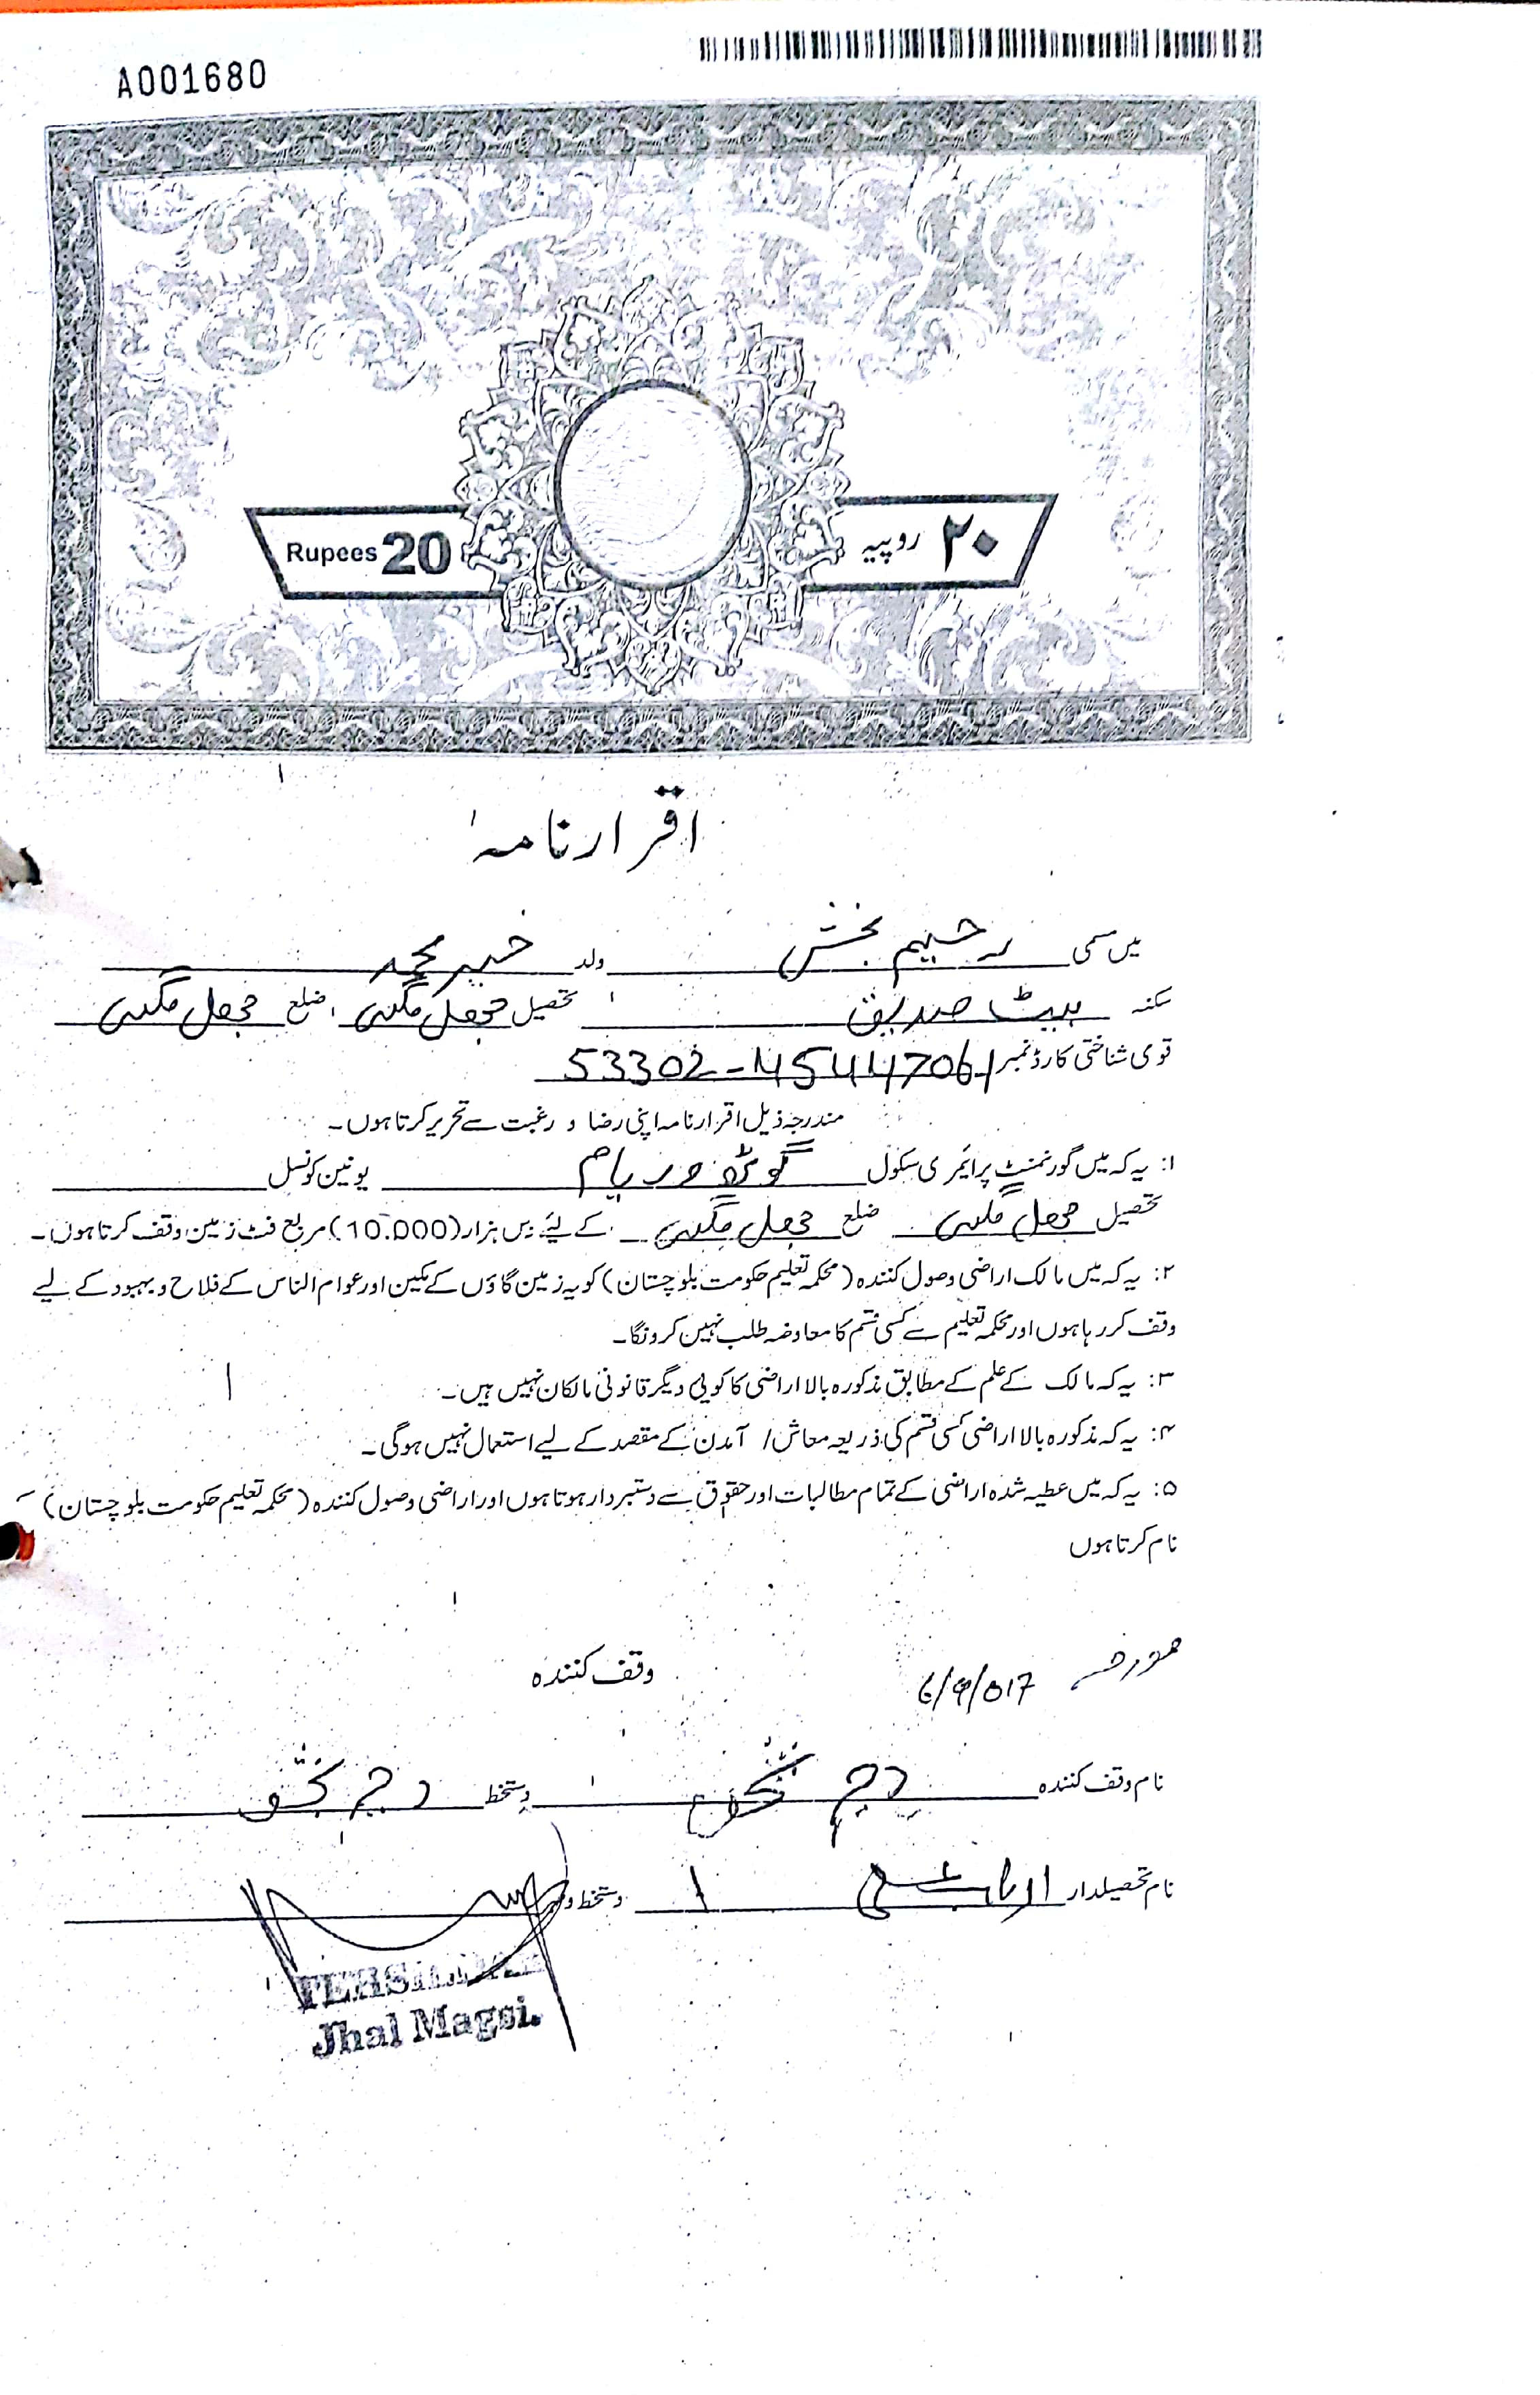 A001680
Rupees 20
۲۰ روپیہ
اقرارنامہ
میں مسمی رحیم بخش ولد خیر محمد
سکنہ ہیٹ صدیق تحصیل جھل مگسی ضلع جھل مگسی
قومی شناختی کارڈ نمبر 53302-4544706-1
مندرجہ ذیل اقرارنامہ اپنی رضا و رغبت سے تحریر کرتا ہوں۔
۱: یہ کہ میں گورنمنٹ پرائمری سکول گوٹھ وریام یونین کونسل
تحصیل جھل مگسی ضلع جھل مگسی کے لیئے دس ہزار (10.000) مربع فٹ زمین وقف کرتا ہوں۔
۲: یہ کہ میں مالک اراضی وصول کنندہ (محکمہ تعلیم حکومت بلوچستان) کو یہ زمین گاؤں کے مکین اور عوام الناس کے فلاح و بہبود کے لیے
وقف کر رہا ہوں اور محکمہ تعلیم سے کسی قسم کا معاوضہ طلب نہیں کرونگا۔
۳: یہ کہ مالک کے علم کے مطابق مذکورہ بالا اراضی کا کوئی دیگر قانونی مالکان نہیں ہیں۔
۴: یہ کہ مذکورہ بالا اراضی کسی قسم کی ذریعہ معاش / آمدن کے مقصد کے لیے استعمال نہیں ہوگی۔
۵: یہ کہ میں عطیہ شدہ اراضی کے تمام مطالبات اور حقوق سے دستبردار ہوتا ہوں اور اراضی وصول کنندہ (محکمہ تعلیم حکومت بلوچستان) کے
نام کرتا ہوں
مورخہ 6/9/017 وقف کنندہ
نام وقف کنندہ رحیم بخش دستخط
نام تحصیلدار دستخط و مہر
TEHSILDAR
Jhal Magsi.